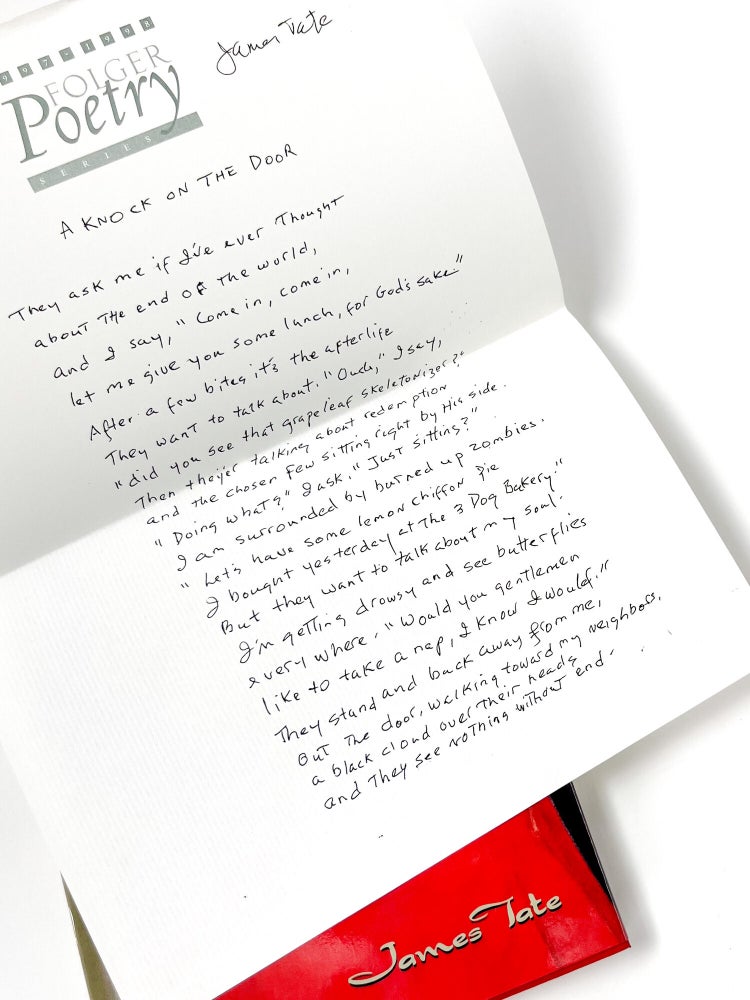 1997-1998
FOLGER
Poetry
SERIES
James Tate
A KNOCK ON THE DOOR
They ask me if I've ever Thought
about The end of the world,
and I say, "Come in, come in,
let me give you some lunch, for God's sake"
After a few bites it's the afterlife
They want to talk about. "Ouch," I say,
"did you see that grape leaf skeletonizer?"
Then they're talking about redemption
and the chosen few sitting right by His side.
"Doing what?" I ask. "Just sitting?"
I am surrounded by burned up zombies.
"Let's have some lemon chiffon pie
I bought yesterday at The 3 Dog Bakery."
But they want to talk about my soul.
I'm getting drowsy and see butterflies
everywhere. "Would you gentlemen
like to take a nap, I know I would."
They stand and back away from me,
out The door, walking toward my neighbors,
a black cloud over their heads
and They see nothing without end.
James Tate